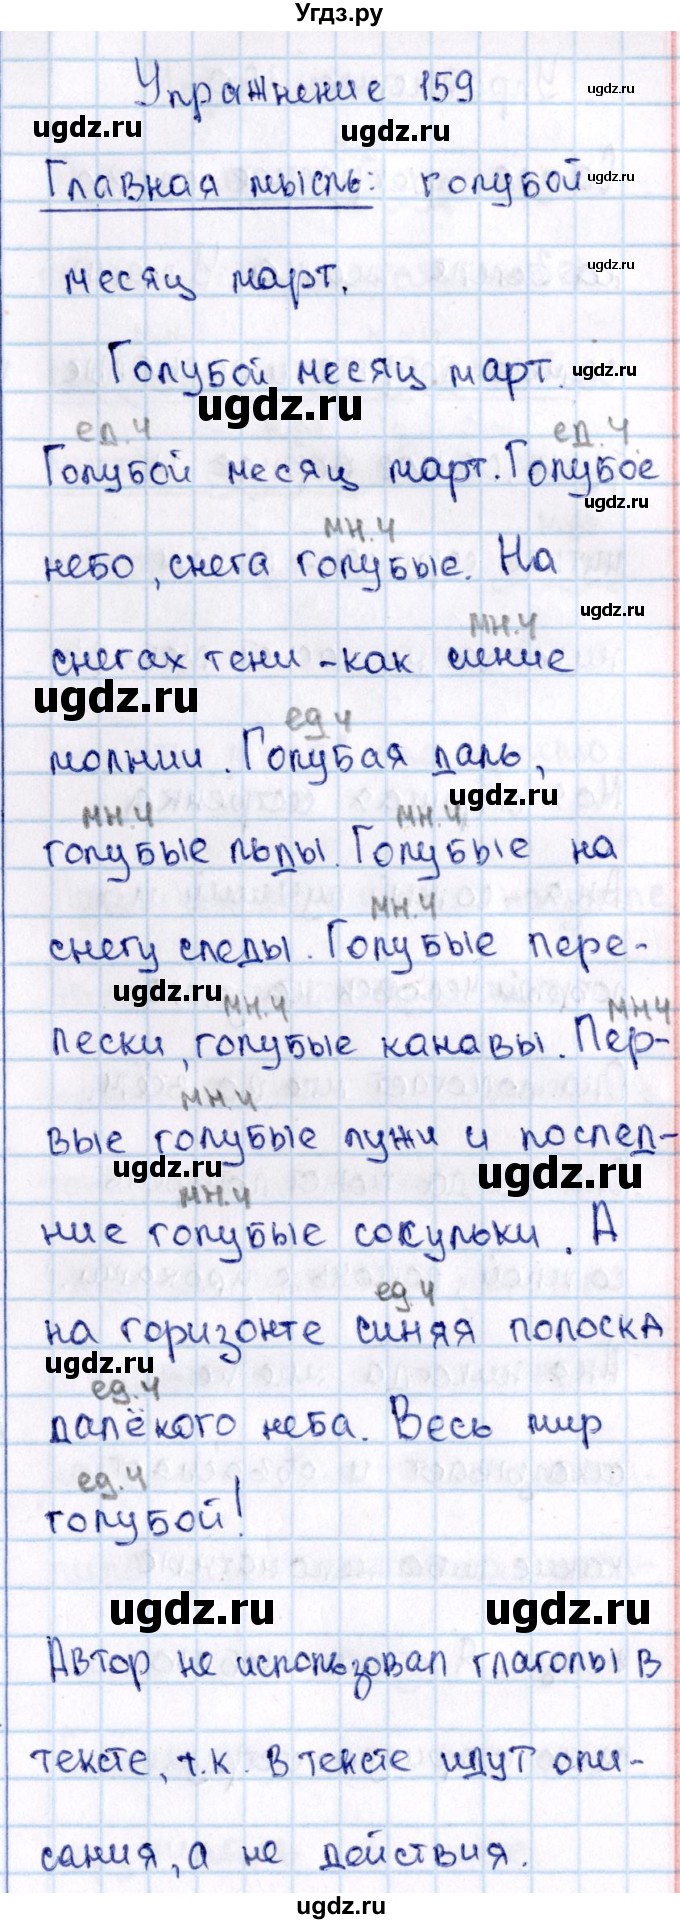 Угдз.ру
Упражнение 159
ugdz.ru
ugdz.ru
ugdz.ru
Главная мысль: голубой
ugdz.ru
месяц март.
ugdz.ru
Голубой месяц март.
ugdz.ru
ugdz.ru
ед.ч ед.ч.
Голубой месяц март. Голубое
ugdz.ru
мн.ч
небо, снега голубые. На
ugdz.ru
мн.ч
снегах тени - как синие
ugdz.ru
ед ч
молнии. Голубая даль,
ugdz.ru
мн.ч мн.ч.
голубые льды. Голубые на
мн.ч
снегу следы. Голубые пере-
ugdz.ru
мн.ч мнч
лески, голубые канавы. Пер-
мн.ч
вые голубые лужи и послед-
ugdz.ru
ugdz.ru
мн.ч
ние голубые сосульки. А
ед.ч
на горизонте синяя полоска
ugdz.ru
ед.ч
далёкого неба. Весь мир
ед.ч
голубой!
ugdz.ru
ugdz.ru
Автор не использовал глаголы в
тексте, т.к. в тексте идут опи-
сания, а не действия.
ugdz.ru